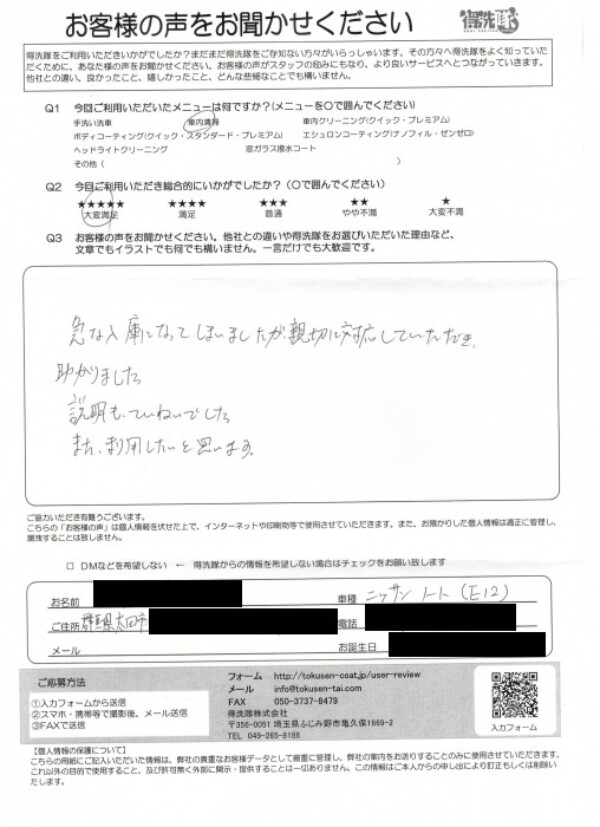 お客様の声をお聞かせください
得洗隊
得洗隊をご利用いただきいかがでしたか?まだまだ得洗隊をご存知ない方々がいらっしゃいます。その方々へ得洗隊をよく知っていた
だくために、あなた様の声をお聞かせください。お客様の声がスタッフの励みにもなり、より良いサービスへとつながっていきます。
他社との違い、良かったこと、嬉しかったこと、どんな些細なことでも構いません。
Q1 今回ご利用いただいたメニューは何ですか?(メニューを〇で囲んでください)
手洗い洗車 車内清掃 車内クリーニング(クイック・プレミアム)
ボディコーティング(クイック・スタンダード・プレミアム) エシュロンコーティング(ナノフィル・ゼンゼロ)
ヘッドライトクリーニング 窓ガラス撥水コート
その他( )
Q2 今回ご利用いただき総合的にいかがでしたか?(〇で囲んでください)
★★★★★ ★★★★ ★★★ ★★ ★
大変満足 満足 普通 やや不満 大変不満
Q3 お客様の声をお聞かせください。他社との違いや得洗隊をお選びいただいた理由など、
文章でもイラストでも何でも構いません。一言だけでも大歓迎です。
急な入庫になってしまいましたが、親切に対応していただき、
助かりました。
説明も、ていねいでした。
また、利用したいと思います。
ご協力いただき有難うございます。
こちらの「お客様の声」は個人情報を伏せた上で、インターネットや印刷物等で使用させていただきます。また、お預かりした個人情報は適正に管理し、
漏洩することは致しません。
□ DMなどを希望しない ← 得洗隊からの情報を希望しない場合はチェックをお願い致します
お名前 車種 ニッサン ノート(E12)
ご住所 群馬県太田市 電話
メール お誕生日
ご応募方法
①入力フォームから送信
②スマホ・携帯等で撮影後、メール送信
③FAXで送信
フォーム http://tokusen-coat.jp/user-review
メール info@tokusen-tai.com
FAX 050-3737-8479
得洗隊株式会社
〒356-0051 埼玉県ふじみ野市亀久保1669-2
TEL 049-265-8186
入力フォーム
【個人情報の保護について】
こちらの用紙にご記入いただいた情報は、弊社の貴重なお客様データとして厳重に管理し、弊社の案内をお送りすることのみに使用させていただきます。
これ以外の目的で使用すること、及び許可業く外部に開示・提供することは一切ありません。この情報はご本人からの申し出により訂正もしくは削除い
たします。